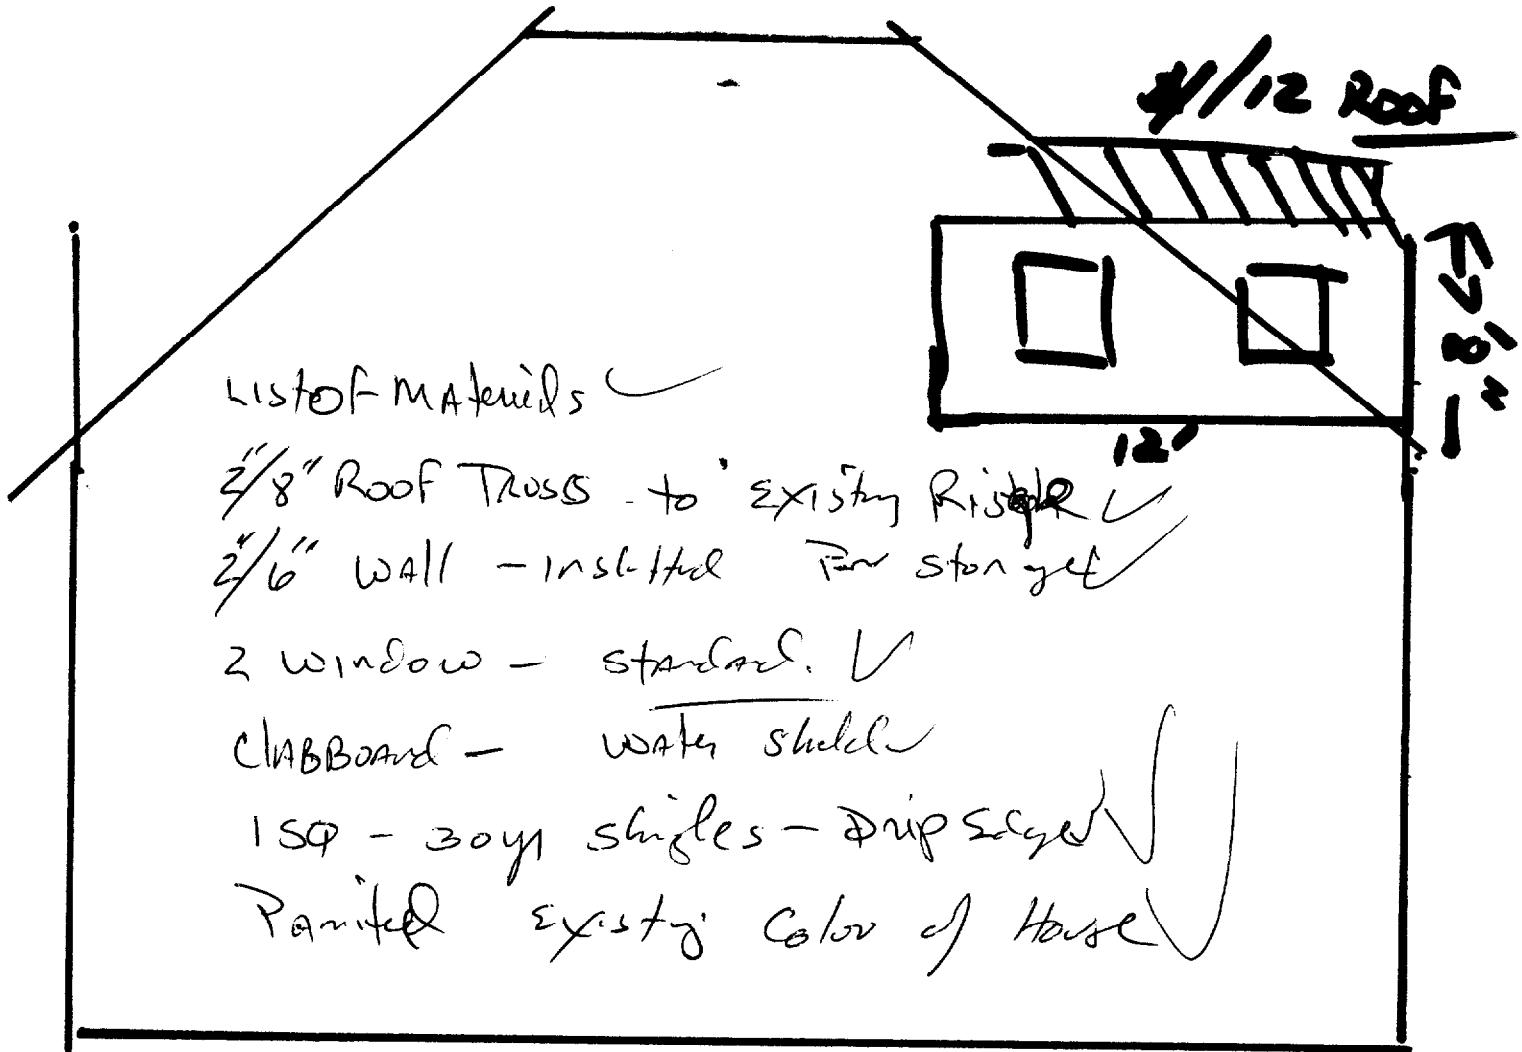 4/12 Roof
12'
List of Materials
2"/8" Roof Truss - to Existing
2"/6" Wall - For Storage
2 window - standard.
ClABBoard - water shield
1 SQ - 30 yr shingles - Drip Edge
Painted Existing Color of House